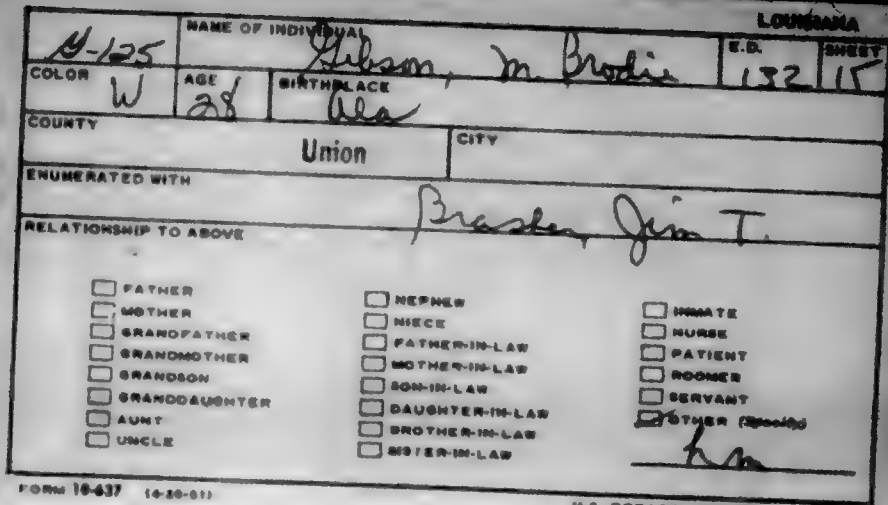 LOUISIANA
G-125 NAME OF INDIVIDUAL Gibson, M. Brodie E.D. 132 SHEET 15
COLOR W AGE 28 BIRTHPLACE Ala
COUNTY Union CITY
ENUMERATED WITH
Jim T.
RELATIONSHIP TO ABOVE
FATHER
MOTHER
GRANDFATHER
GRANDMOTHER
GRANDSON
GRANDDAUGHTER
AUNT
UNCLE
NEPHEW
NIECE
FATHER-IN-LAW
MOTHER-IN-LAW
SON-IN-LAW
DAUGHTER-IN-LAW
BROTHER-IN-LAW
SISTER-IN-LAW
INMATE
NURSE
PATIENT
ROOMER
SERVANT
OTHER (Specify)
hm
FORM 10-637 (4-20-61)